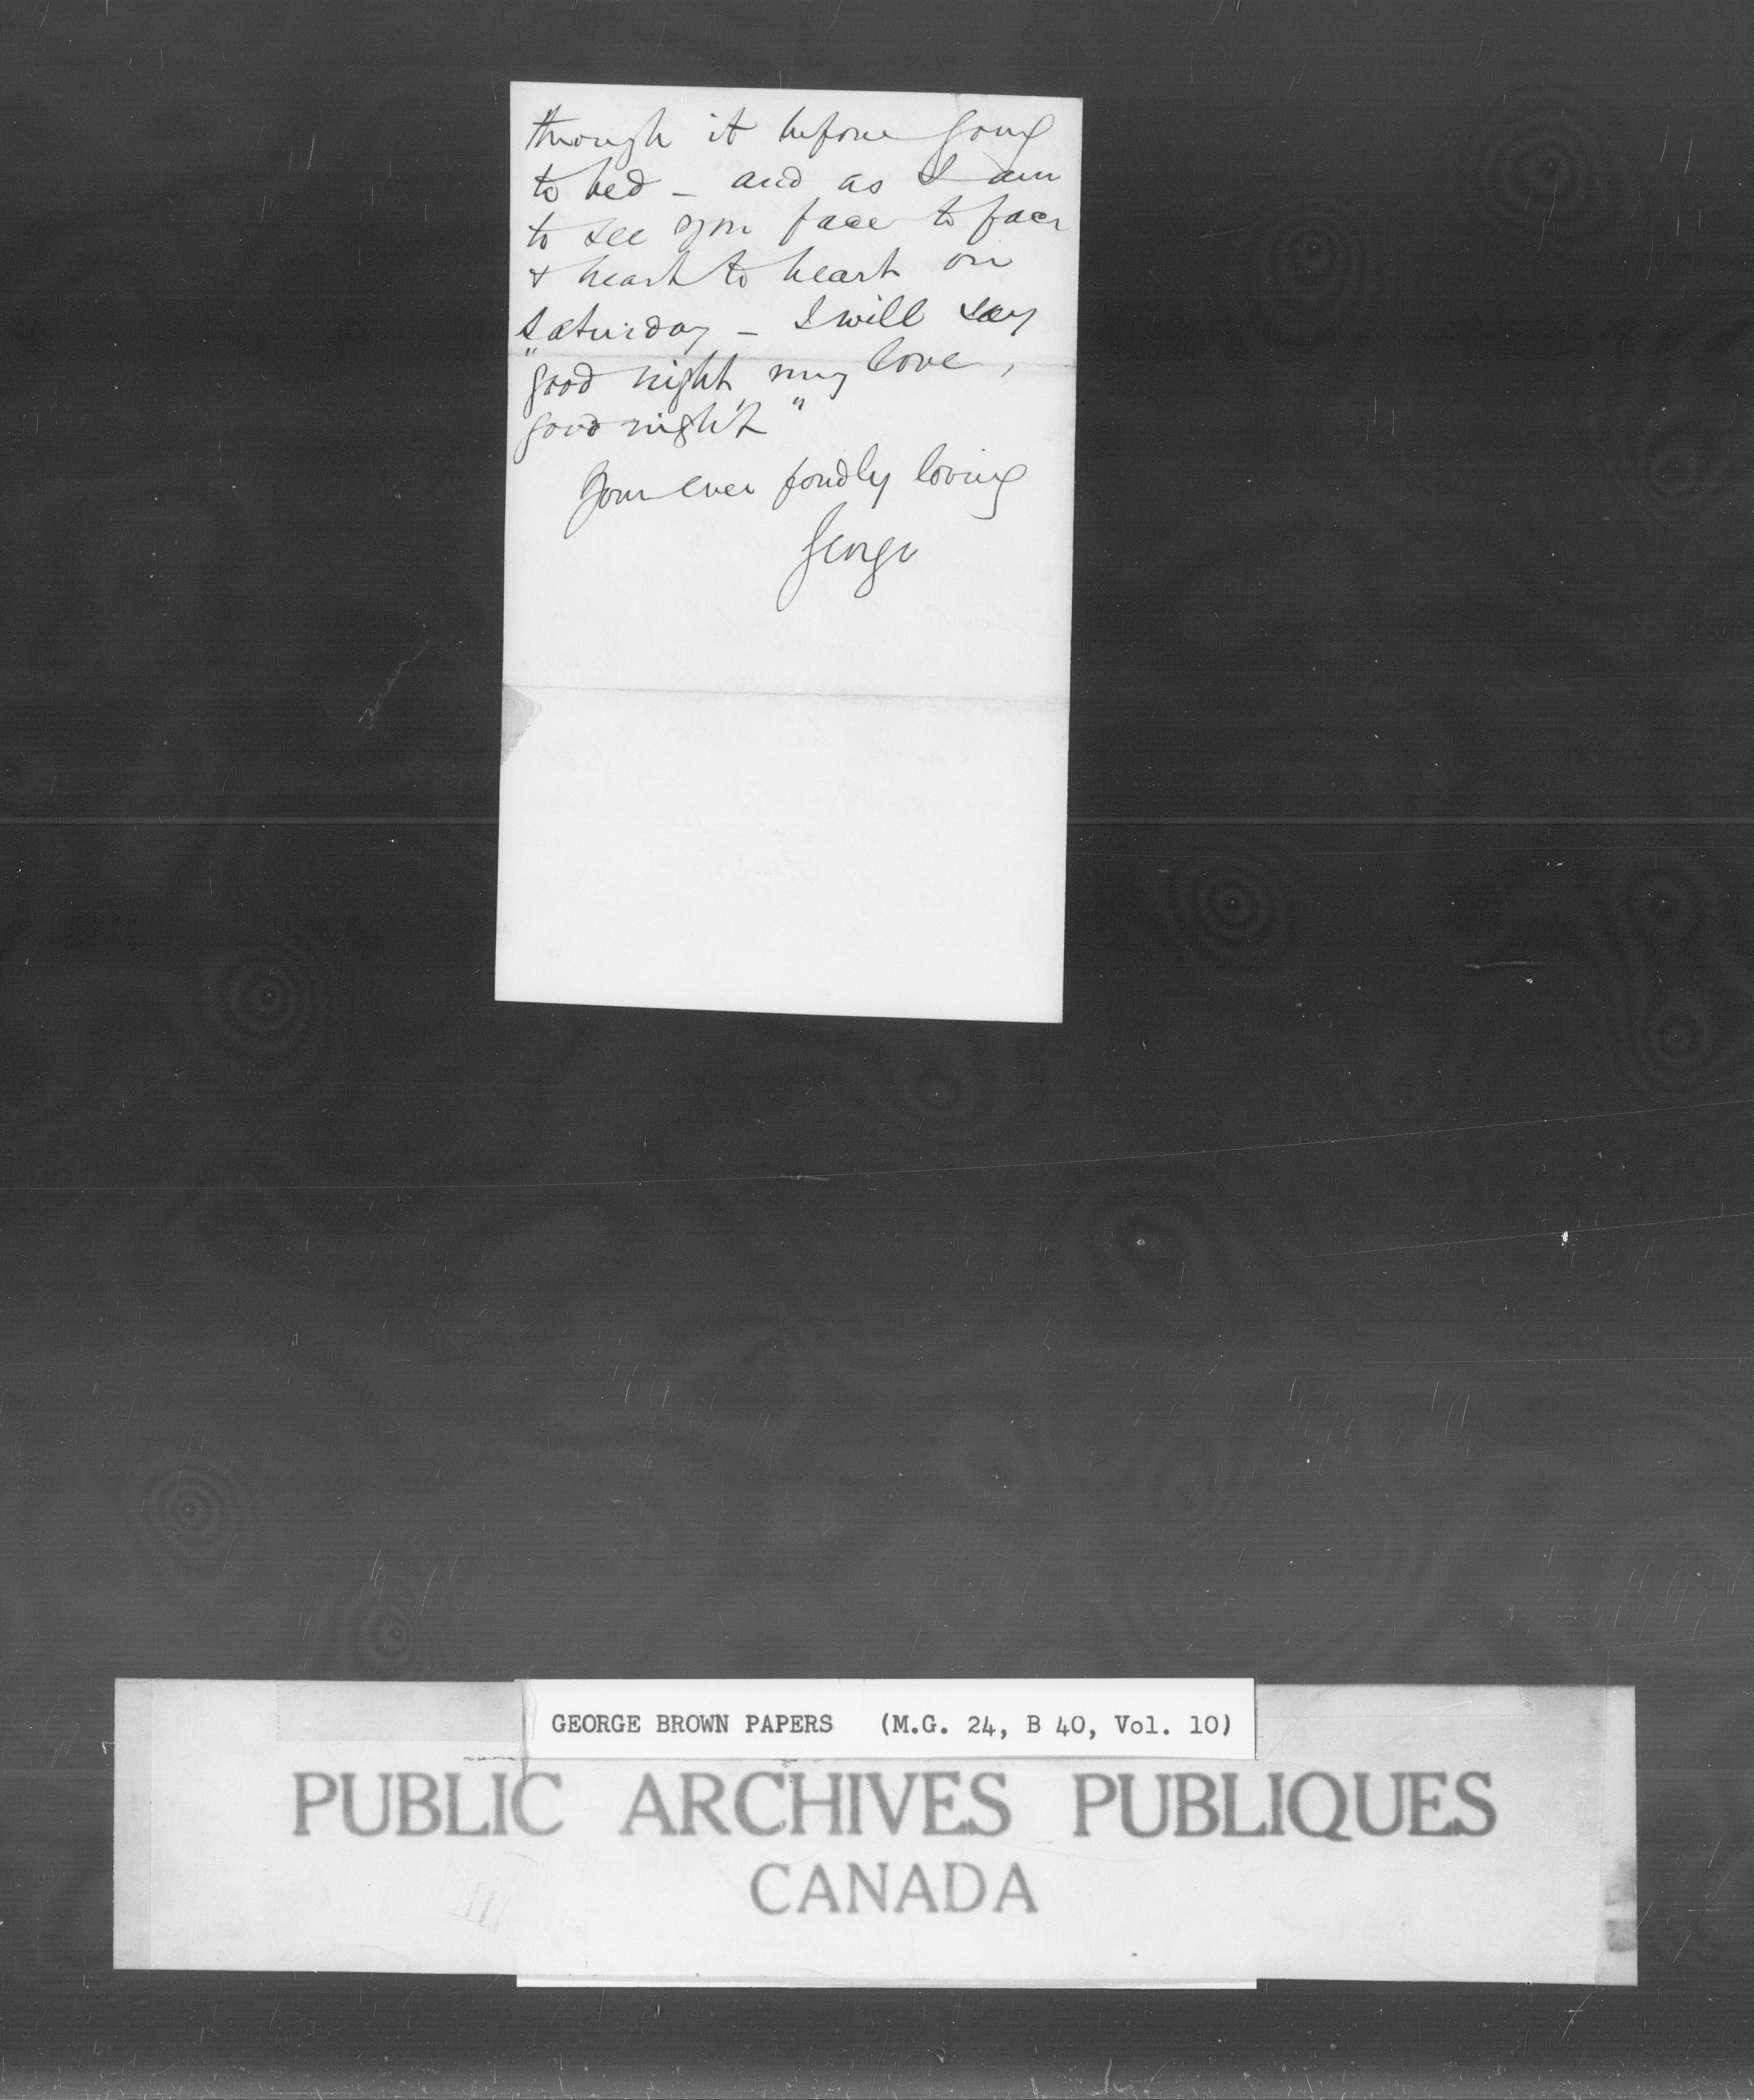 through it before going
to bed - and as I am
to see you face to face
& heart to heart on
Saturday - I will say
"good night my love,
good night"
Your ever fondly loving
George
GEORGE BROWN PAPERS (M.G. 24, B 40, Vol. 10)
PUBLIC ARCHIVES PUBLIQUES
CANADA